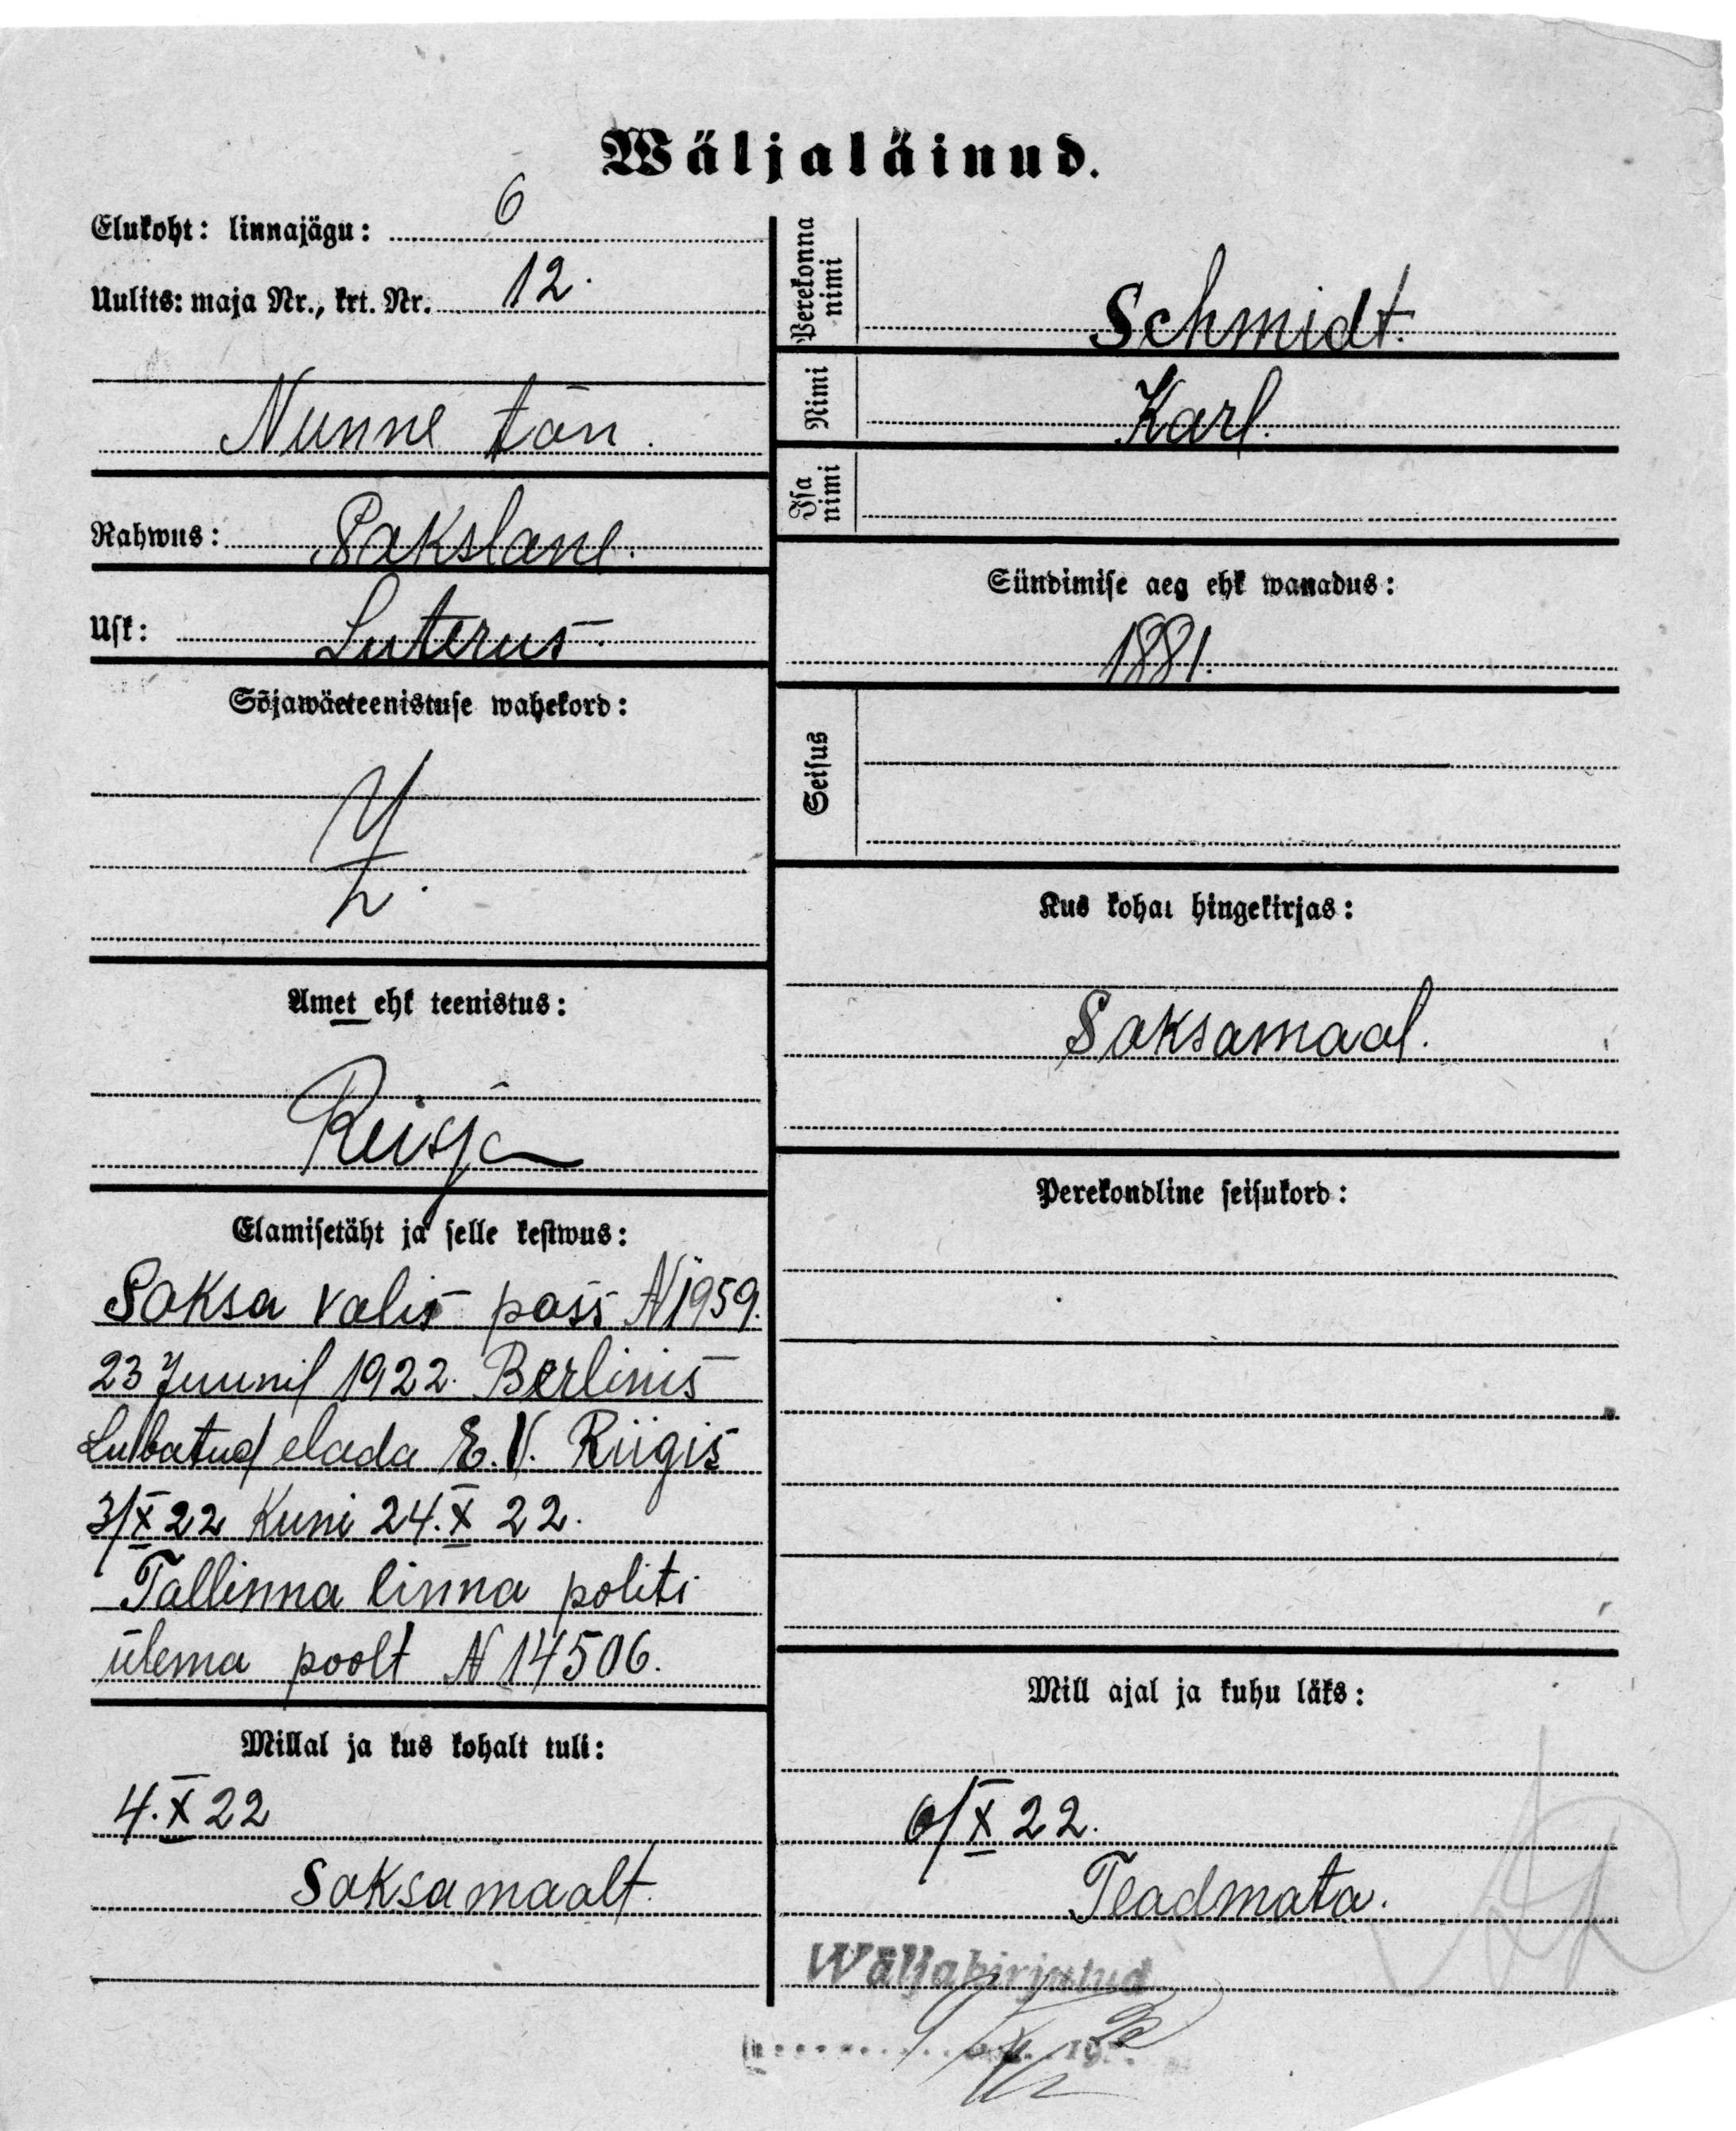 Wäljaläinud.
Elukoht: linnajägu: 6
Uulits: maja Nr., krt. Nr. 12.
Nunne tän.
Rahwus: Sakslane.
Usk: Luterus.
Sõjawäeteenistuse wahekord:
Amet ehk teenistus:
Reisja
Elamisetäht ja selle kestwus:
Saksa valis pass N 1959.
23 Juunil 1922. Berlinis
Lubatud elada E.V. Riigis
3/X 22 Kuni 24.X 22.
Tallinna linna politi
ülema poolt N 14506.
Millal ja kus kohalt tuli:
4.X 22
Saksamaalt.
Perekonna
nimi
Schmidt.
Nimi
Karl.
Isa
nimi
Sündimise aeg ehk wanadus:
1881.
Seisus
Kus kohal hingekirjas:
Saksamaal.
Perekondline seisukord:
Mill ajal ja kuhu läks:
6/X 22.
Teadmata.
Wäljakirjutud